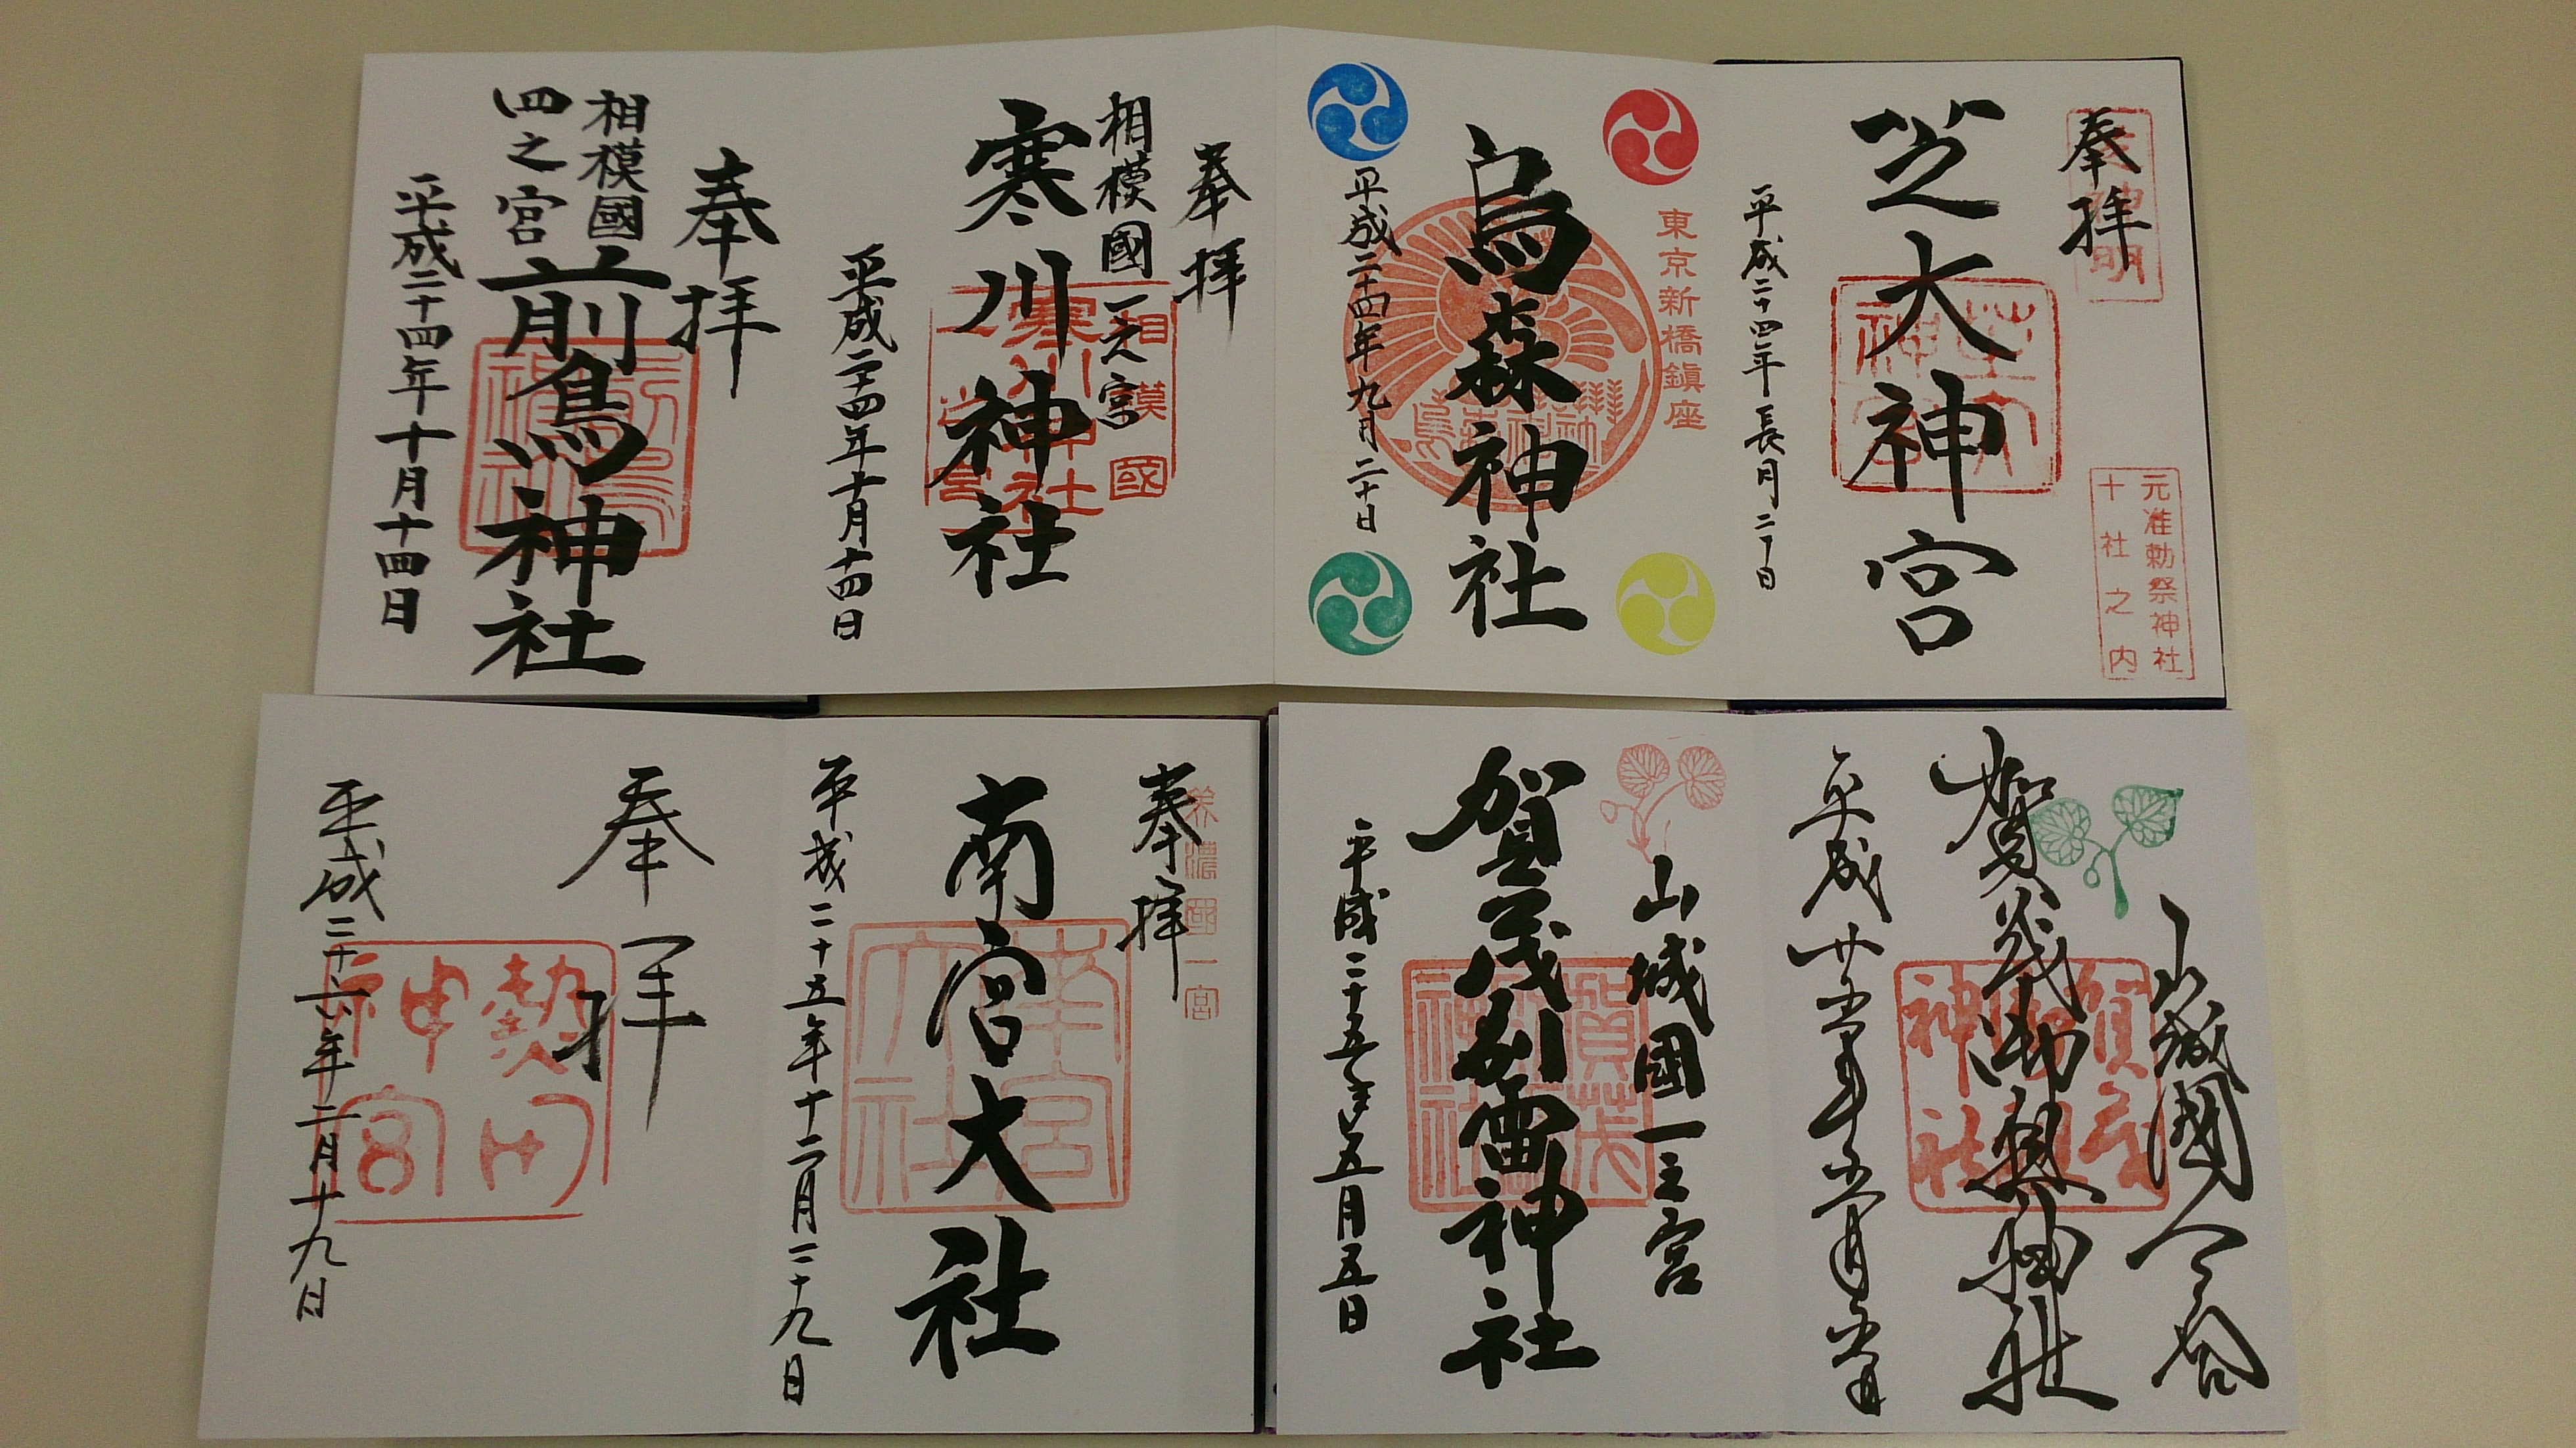 奉拝
芝大神宮
平成二十四年長月二十日
元准勅祭神社
十社之内
東京新橋鎮座
烏森神社
平成二十四年九月二十日
奉拝
相模國一之宮
寒川神社
平成二十四年十月十四日
相模國
奉拝
相模國
四之宮
前鳥神社
平成二十四年十月十四日
山城國一之宮
賀茂御祖神社
平成廿五年五月五日
賀茂
山城國一之宮
賀茂別雷神社
平成二十五年五月五日
奉拝
美濃国一宮
南宮大社
平成二十五年十二月二十九日
南宮
大社
奉拝
熱田
神宮
平成二十六年二月十九日